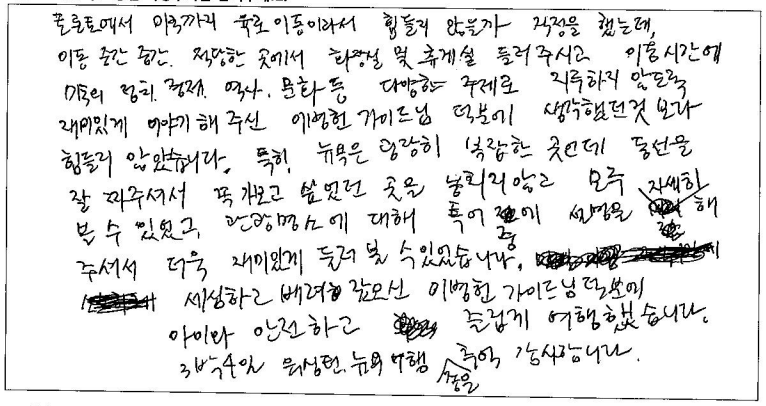 토론토에서 미국까지 육로이동이라서 힘들지 않을까 걱정을 했는데,
이동 중간 중간. 적당한 곳에서 화장실 및 휴게실 들러주시고 이동시간에
미국의 정치. 경제. 역사. 문화 등 다양한 주제로 지루하지 않도록
재미있게 이야기해 주신 이병헌 가이드님 덕분에 생각했던것 보다
힘들지 않았습니다. 특히, 뉴욕은 굉장히 복잡한 곳인데 동선을
잘 짜주셔서 꼭 가보고 싶었던 곳을 놓치지않고 모두 자세히
볼 수 있었고, 관광명소에 대해 투어 전에 설명을 해
주셔서 더욱 재미있게 둘러 볼 수 있었습니다.
세심하고 배려 깊으신 이병헌 가이드님덕분에
아이와 안전하고 즐겁게 여행했습니다.
3박4일 워싱턴. 뉴욕 여행 좋은 추억 감사합니다.